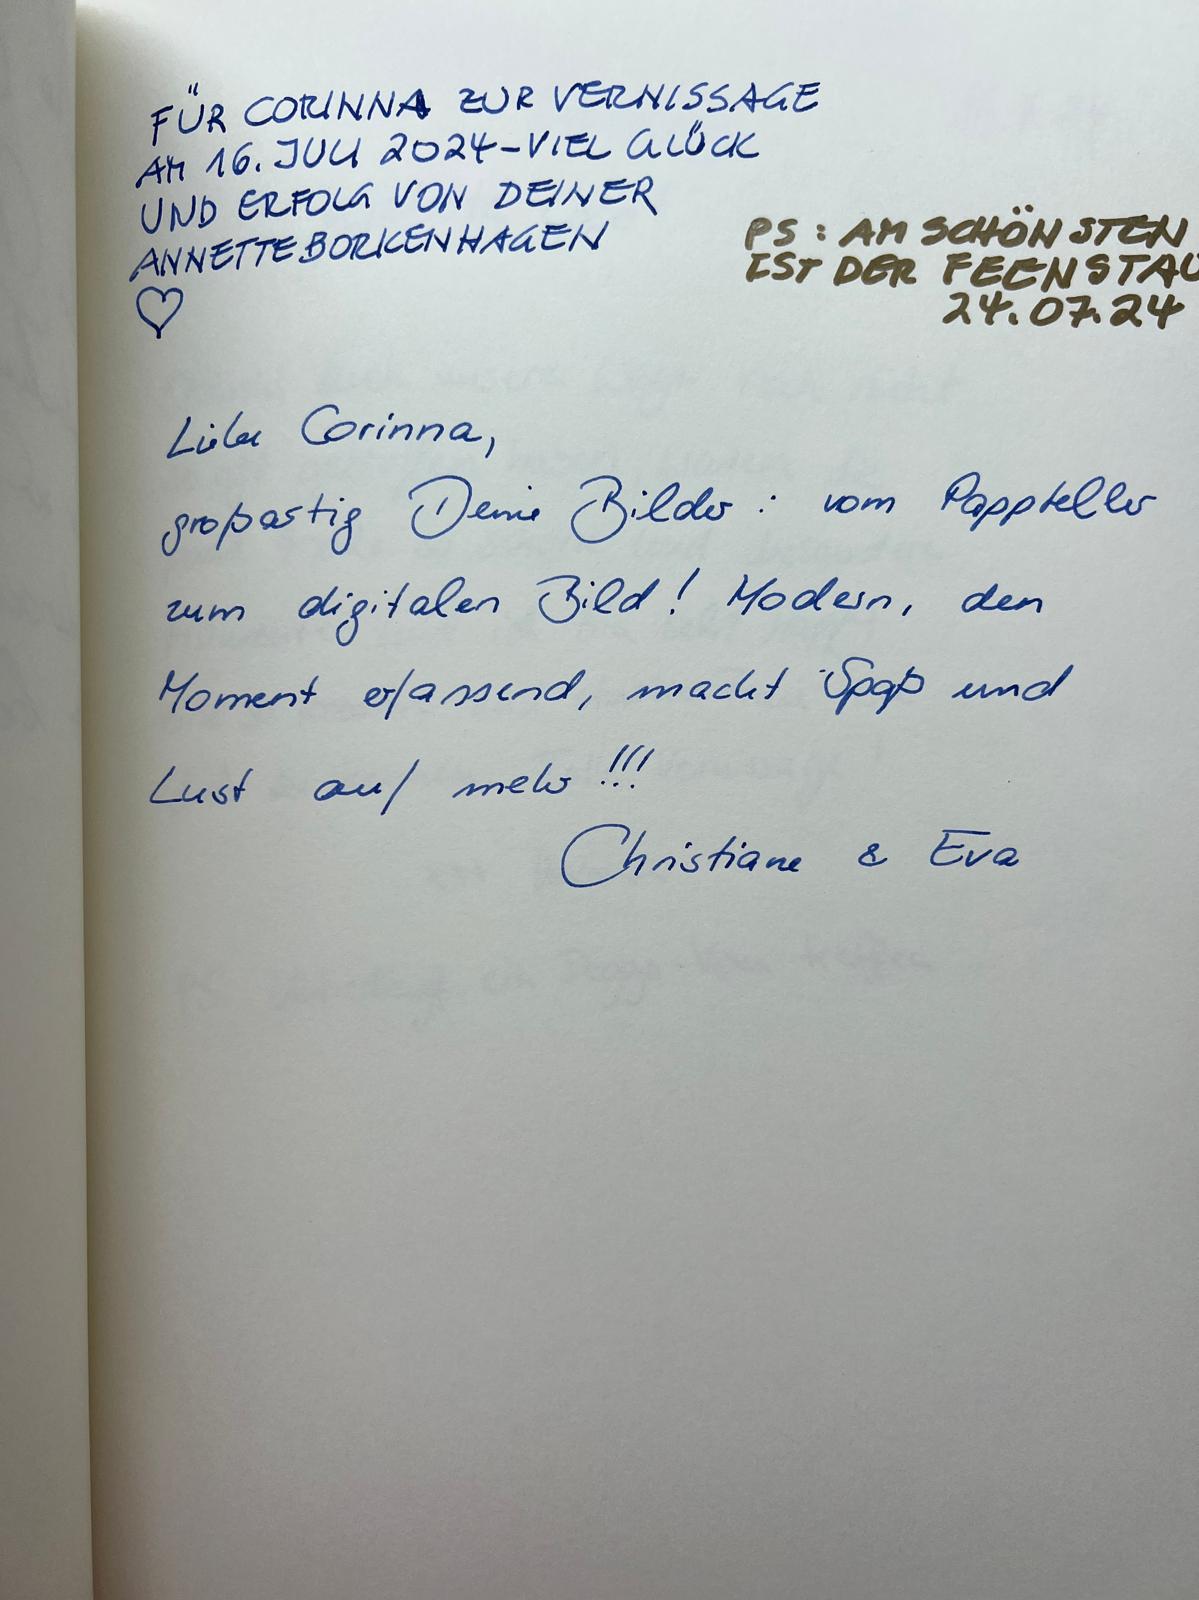 FÜR CORINNA ZUR VERNISSAGE
AM 16. JULI 2024 - VIEL GLÜCK
UND ERFOLG VON DEINER
ANNETTE BORKENHAGEN
♡
PS: AM SCHÖNSTEN
IST DER FEENSTAU
24.07.24
Liebe Corinna,
großartig Deine Bilder: vom Pappteller
zum digitalen Bild! Modern, den
Moment erfassend, macht Spaß und
Lust auf mehr!!!
Christiane & Eva